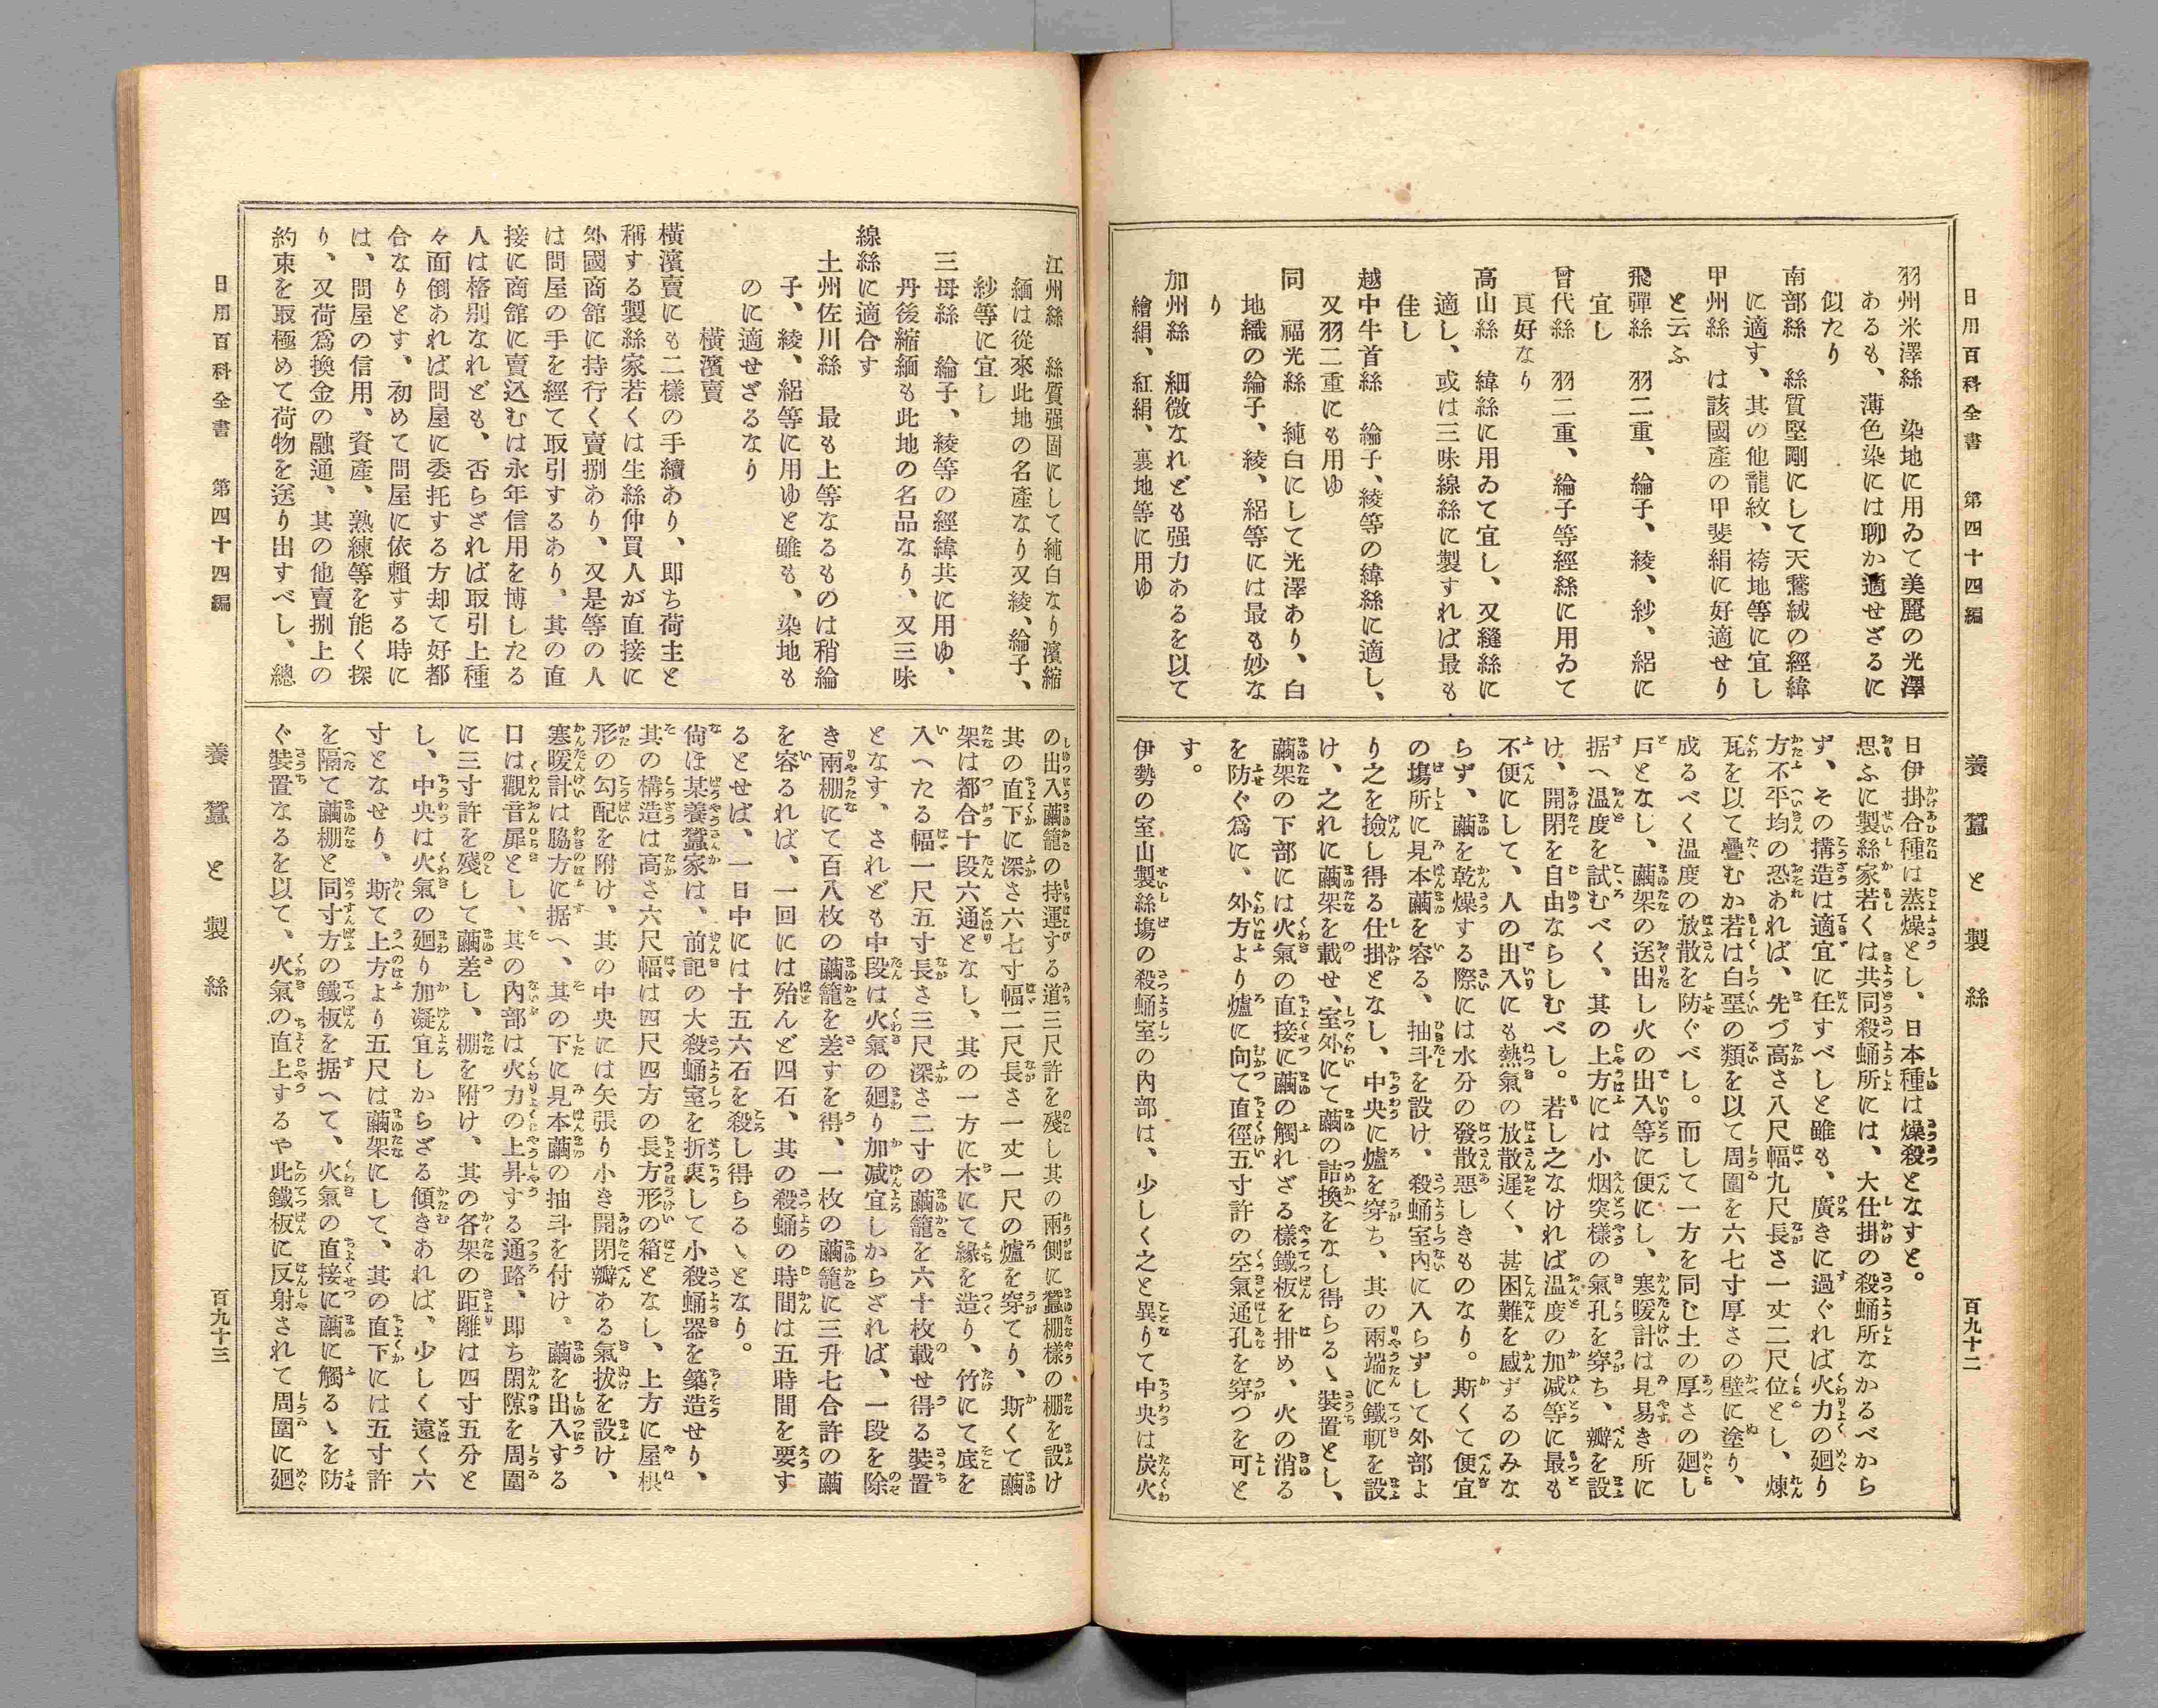 日用百科全書　第四十四編
養蠶と製絲
百九十二
羽州米澤絲　染地に用ゐて美麗の光澤
あるも、薄色染には聊か適せざるに
似たり
南部絲　絲質堅剛にして天鵞絨の經緯
に適す、其の他龍紋、袴地等に宜し
甲州絲　は該國產の甲斐絹に好適せり
と云ふ
飛彈絲　羽二重、綸子、綾、紗、絽に
宜し
曾代絲　羽二重、綸子等經絲に用ゐて
良好なり
高山絲　緯絲に用ゐて宜し、又縫絲に
適し、或は三味線絲に製すれば最も
佳し
越中牛首絲　綸子、綾等の緯絲に適し、
又羽二重にも用ゆ
同　福光絲　純白にして光澤あり、白
地織の綸子、綾、絽等には最も妙な
り
加州絲　細微なれども强力あるを以て
繪絹、紅絹、裏地等に用ゆ
日伊掛合種は蒸燥とし、日本種は燥殺となすと。
思ふに製絲家若くは共同殺蛹所には、大仕掛の殺蛹所なかるべから
ず、その搆造は適宜に任すべしと雖も、廣きに過ぐれば火力の廻り
方不平均の恐あれば、先づ高さ八尺幅九尺長さ一丈二尺位とし、煉
瓦を以て疊むか若は白堊の類を以て周圍を六七寸厚さの壁に塗り、
成るべく温度の放散を防ぐべし。而して一方を同じ土の厚さの廻し
戸となし、繭架の送出し火の出入等に便にし、寒暖計は見易き所に
据へ温度を試むべく、其の上方には小烟突樣の氣孔を穿ち、瓣を設
け、開閉を自由ならしむべし。若し之なければ温度の加减等に最も
不便にして、人の出入にも熱氣の放散遲く、甚困難を感ずるのみな
らず、繭を乾燥する際には水分の發散惡しきものなり。斯くて便宜
の塲所に見本繭を容る、抽斗を設け、殺蛹室内に入らずして外部よ
り之を撿し得る仕掛となし、中央に爐を穿ち、其の兩端に鐵軏を設
け、之れに繭架を載せ、室外にて繭の詰換をなし得らるゝ裝置とし、
繭架の下部には火氣の直接に繭の觸れざる樣鐵板を拑め、火の消る
を防ぐ爲に、外方より爐に向て直徑五寸許の空氣通孔を穿つを可と
す。
伊勢の室山製絲塲の殺蛹室の内部は、少しく之と異りて中央は炭火
江州絲　絲質强固にして純白なり濱縮
緬は從來此地の名產なり又綾、綸子、
紗等に宜し
三母絲　綸子、綾等の經緯共に用ゆ、
丹後縮緬も此地の名品なり、又三味
線絲に適合す
土州佐川絲　最も上等なるものは稍綸
子、綾、絽等に用ゆと雖も、染地も
のに適せざるなり
橫濱賣
橫濱賣にも二樣の手續あり、卽ち荷主と
稱する製絲家若くは生絲仲買人が直接に
外國商館に持行く賣捌あり、又是等の人
は問屋の手を經て取引するあり、其の直
接に商館に賣込むは永年信用を博したる
人は格別なれども、否らざれば取引上種
々面倒あれば問屋に委托する方却て好都
合なりとす、初めて問屋に依賴する時に
は、問屋の信用、資產、熟練等を能く探
り、又荷爲換金の融通、其の他賣捌上の
約束を取極めて荷物を送り出すべし、總
の出入繭籠の持運する道三尺許を殘し其の兩側に蠶棚樣の棚を設け
其の直下に深さ六七寸幅二尺長さ一丈一尺の爐を穿てり、斯くて繭
架は都合十段六通となし、其の一方に木にて緣を造り、竹にて底を
入へたる幅一尺五寸長さ三尺深さ二寸の繭籠を六十枚載せ得る裝置
となす、されども中段は火氣の廻り加减宜しからざれば、一段を除
き兩棚にて百八枚の繭籠を差すを得、一枚の繭籠に三升七合許の繭
を容るれば、一回には殆んど四石、其の殺蛹の時間は五時間を要す
るとせば、一日中には十五六石を殺し得らるゝとなり。
尙ほ某養蠶家は、前記の大殺蛹室を折衷して小殺蛹器を築造せり、
其の構造は高さ六尺幅は四尺四方の長方形の箱となし、上方に屋根
形の勾配を附け、其の中央には矢張り小き開閉瓣ある氣拔を設け、
寒暖計は脇方に据へ、其の下に見本繭の抽斗を付け、繭を出入する
口は觀音扉とし、其の內部は火力の上昇する通路、卽ち間隙を周圍
に三寸許を殘して繭差し、棚を附け、其の各架の距離は四寸五分と
し、中央は火氣の廻り加凝宜しからざる傾きあれば、少しく遠く六
寸となせり、斯て上方より五尺は繭架にして、其の直下には五寸許
を隔て繭棚と同寸方の鐵板を据へて、火氣の直接に繭に觸るゝを防
ぐ裝置なるを以て、火氣の直上するや此鐵板に反射されて周圍に廻
日用百科全書　第四十四編
養蠶と製絲
百九十三